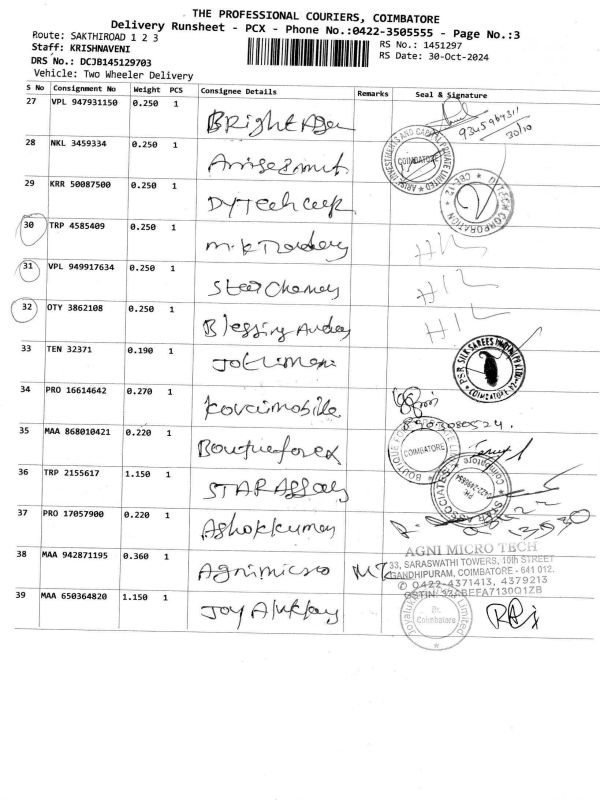 THE PROFESSIONAL COURIERS, COIMBATORE
Delivery Runsheet - PCX - Phone No.:0422-3505555 - Page No.:3
Route: SAKTHIROAD 1 2 3
Staff: KRISHNAVENI
DRS No.: DCJB145129703
Vehicle: Two Wheeler Delivery
RS No.: 1451297
RS Date: 30-Oct-2024
S No Consignment No Weight PCS Consignee Details Remarks Seal & Signature
27 VPL 947931150 0.250 1 Bright Agen
9345967311
30/10
28 NKL 3459334 0.250 1
ARISE INVESTMENTS AND CAPITAL PRIVATE LIMITED
COIMBATORE
29 KRR 50087500 0.250 1 DyTech Corp
DYTECH CORPORATION CBE-12
30 TRP 4585409 0.250 1 M.K Traders H/L
31 VPL 949917634 0.250 1 Star H/L
32 OTY 3862108 0.250 1 Blessing H/L
33 TEN 32371 0.190 1
PSR SILK SAREES
COIMBATORE
34 PRO 16614642 0.270 1 kovaimobile
8903080524.
35 MAA 868010421 0.220 1 Boutqueforex
COIMBATORE
36 TRP 2155617 1.150 1 STAR Assoy
STAR ASSOCIATES
Coimbatore
37 PRO 17057900 0.220 1 Ashokkumar
38 MAA 942871195 0.360 1 Agnimicro
AGNI MICRO TECH
33, SARASWATHI TOWERS, 10th STREET
GANDHIPURAM, COIMBATORE - 641 012.
✆ 0422-4371413, 4379213
GSTIN: 33ABEFA7130Q1ZB
39 MAA 650364820 1.150 1 Joy Alukkay
Br.
Coimbatore